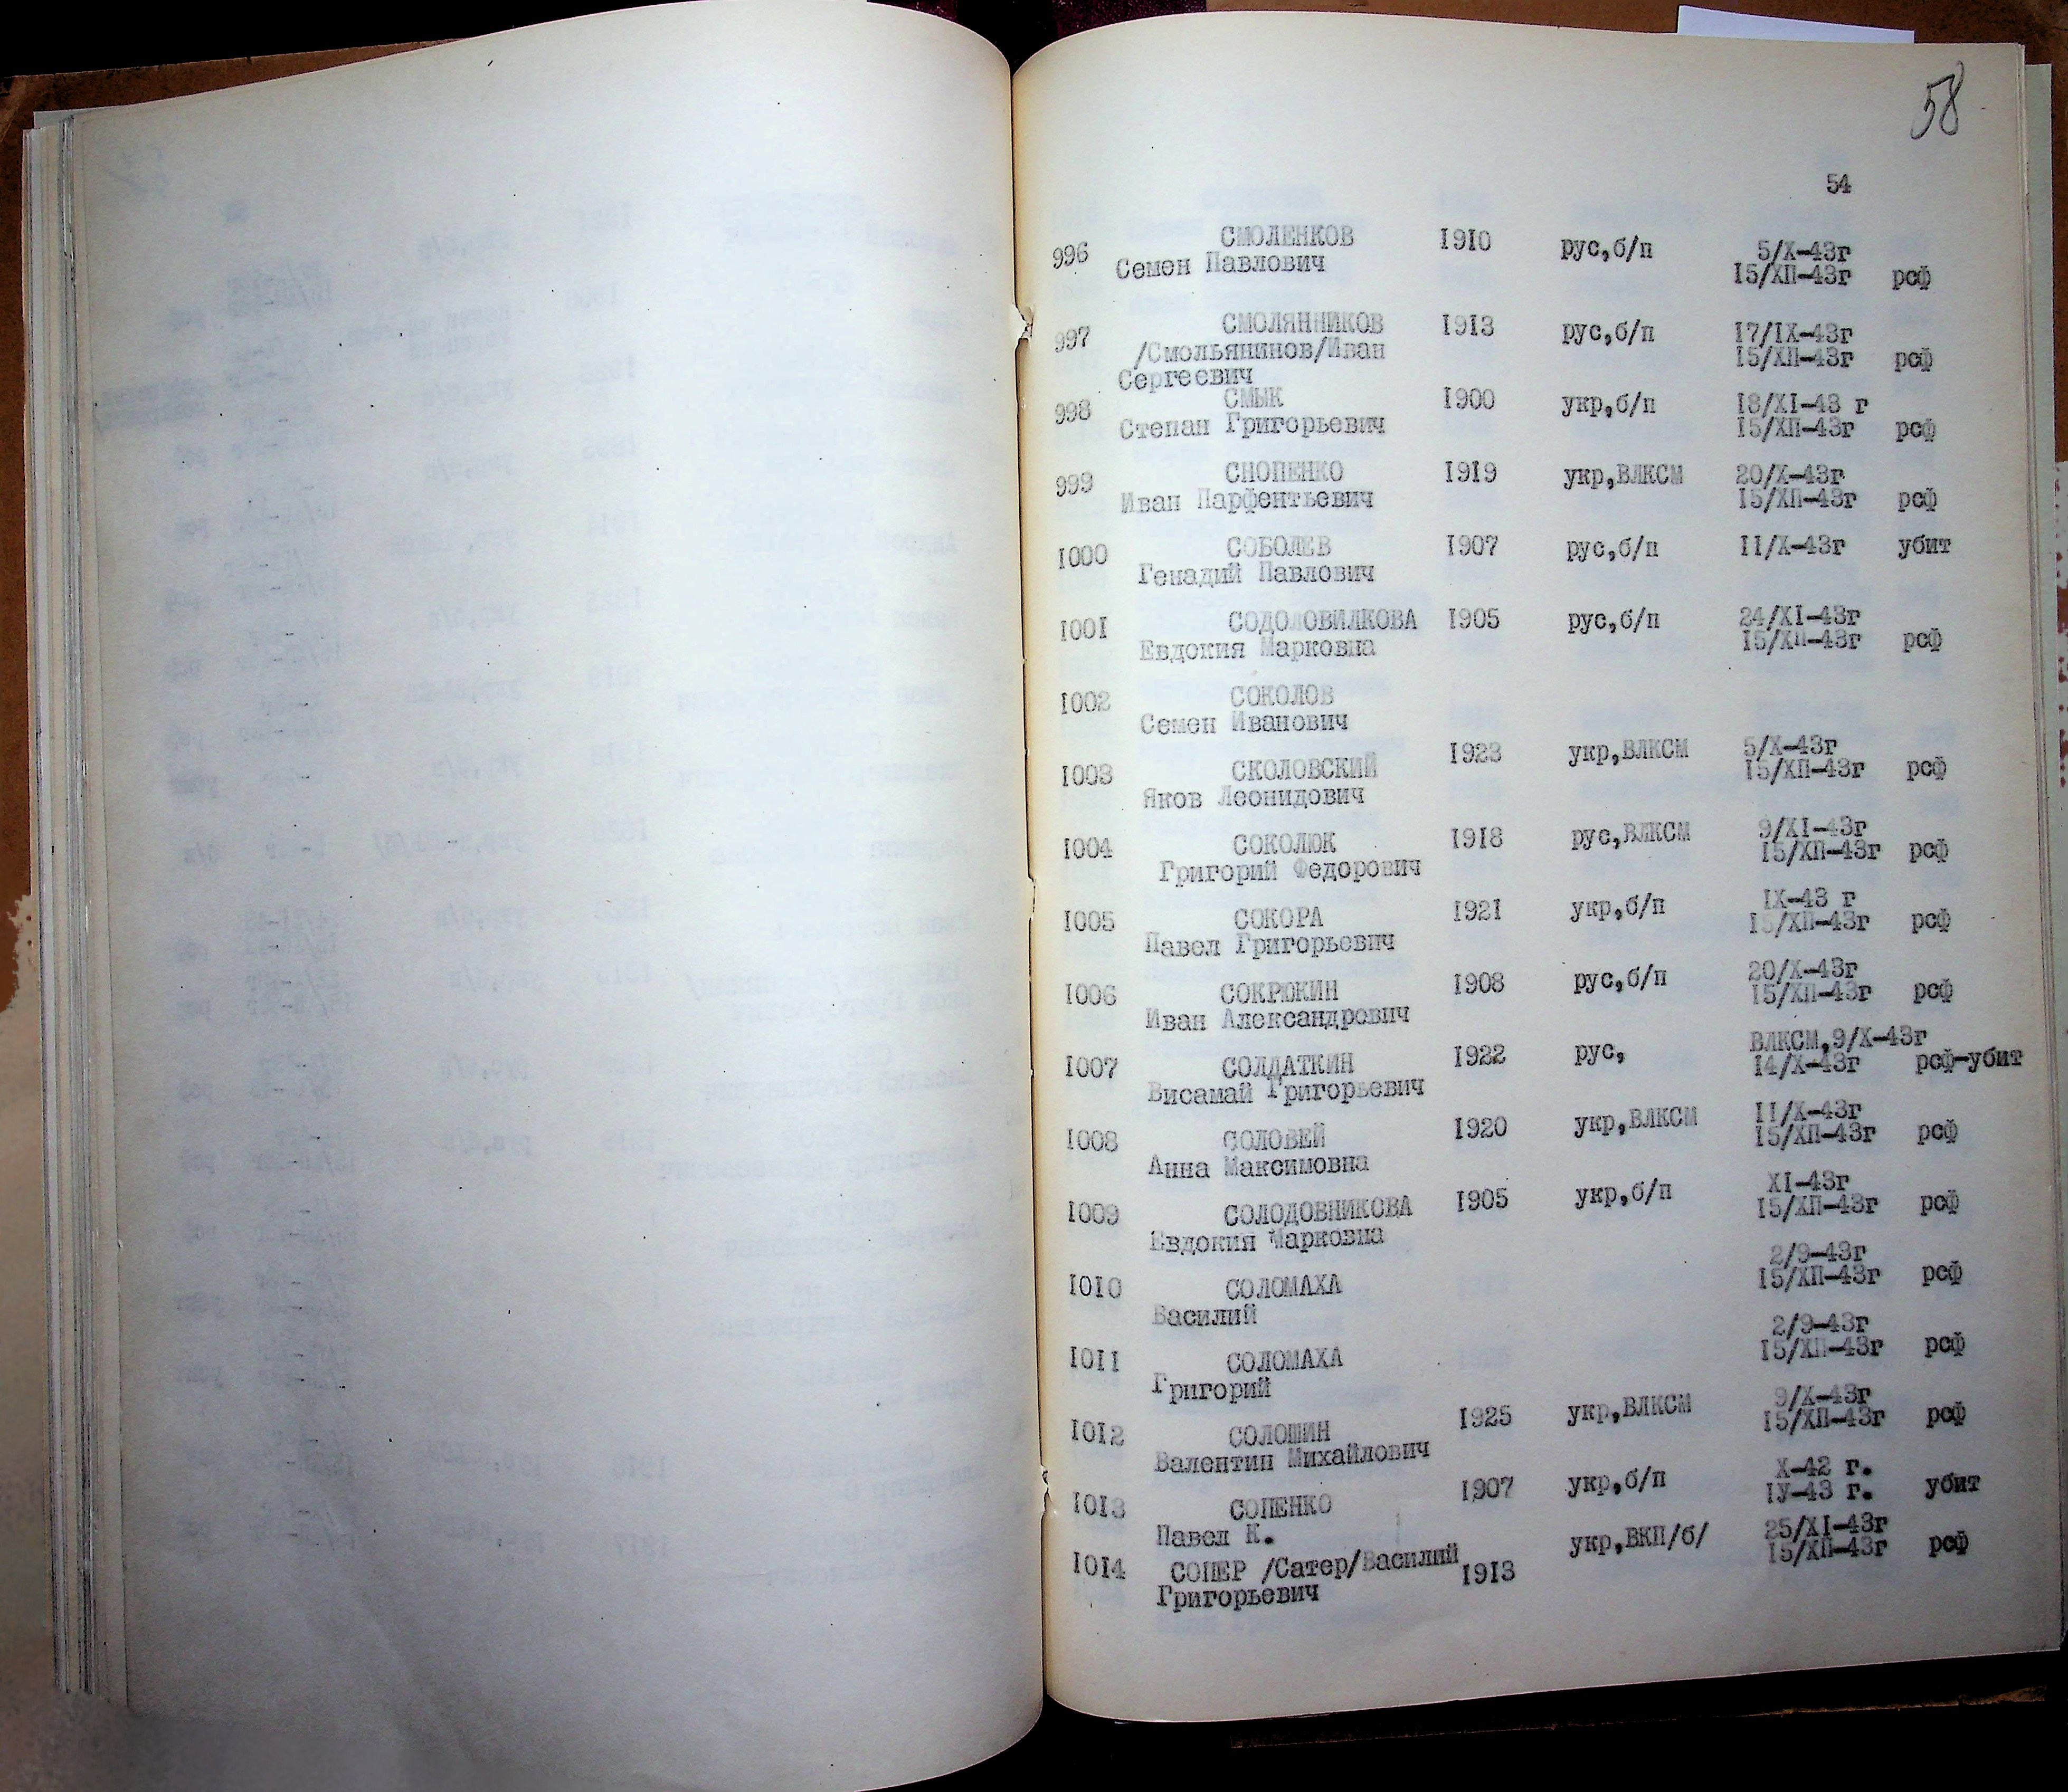 58
54
996 СМОЛЕНКОВ 1910 рус,б/п 5/Х-43г
Семен Павлович 15/ХП-43г рсф
997 СМОЛЯННИКОВ 1913 рус,б/п 17/IХ-43г
/Смольянинов/Иван 15/ХП-43г рсф
Сергеевич
998 СМЫК 1900 укр,б/п 18/ХI-43 г
Степан Григорьевич 15/ХП-43г рсф
999 СНОПЕНКО 1919 укр,ВЛКСМ 20/Х-43г
Иван Парфентьевич 15/ХП-43г рсф
1000 СОБОЛЕВ 1907 рус,б/п 11/Х-43г убит
Генадий Павлович
1001 СОДОЛОВИЛКОВА 1905 рус,б/п 24/ХI-43г
Евдокия Марковна 15/ХП-43г рсф
1002 СОКОЛОВ
Семен Иванович
1003 СКОЛОВСКИЙ 1923 укр,ВЛКСМ 5/Х-43г
Яков Леонидович 15/ХП-43г рсф
1004 СОКОЛЮК 1918 рус,ВЛКСМ 9/ХI-43г
Григорий Федорович 15/ХП-43г рсф
1005 СОКОРА 1921 укр,б/п IХ-43 г
Павел Григорьевич 15/ХП-43г рсф
1006 СОКРЮКИН 1908 рус,б/п 20/Х-43г
Иван Александрович 15/ХП-43г рсф
1007 СОЛДАТКИН 1922 рус, ВЛКСМ,9/Х-43г
Висамай Григорьевич 14/Х-43г рсф-убит
1008 СОЛОВЕЙ 1920 укр,ВЛКСМ 11/Х-43г
Анна Максимовна 15/ХП-43г рсф
1009 СОЛОДОВНИКОВА 1905 укр,б/п ХI-43г
Евдокия Марковна 15/ХП-43г рсф
1010 СОЛОМАХА 2/9-43г
Василий 15/ХП-43г рсф
1011 СОЛОМАХА 2/9-43г
Григорий 15/ХП-43г рсф
1012 СОЛОШИН 1925 укр,ВЛКСМ 9/Х-43г
Валентин Михайлович 15/ХП-43г рсф
1013 СОПЕНКО 1907 укр,б/п Х-42 г.
Павел К. IУ-43 г. убит
1014 СОПЕР /Сатер/Василий 1913 укр,ВКП/б/ 25/ХI-43г
Григорьевич 15/ХП-43г рсф